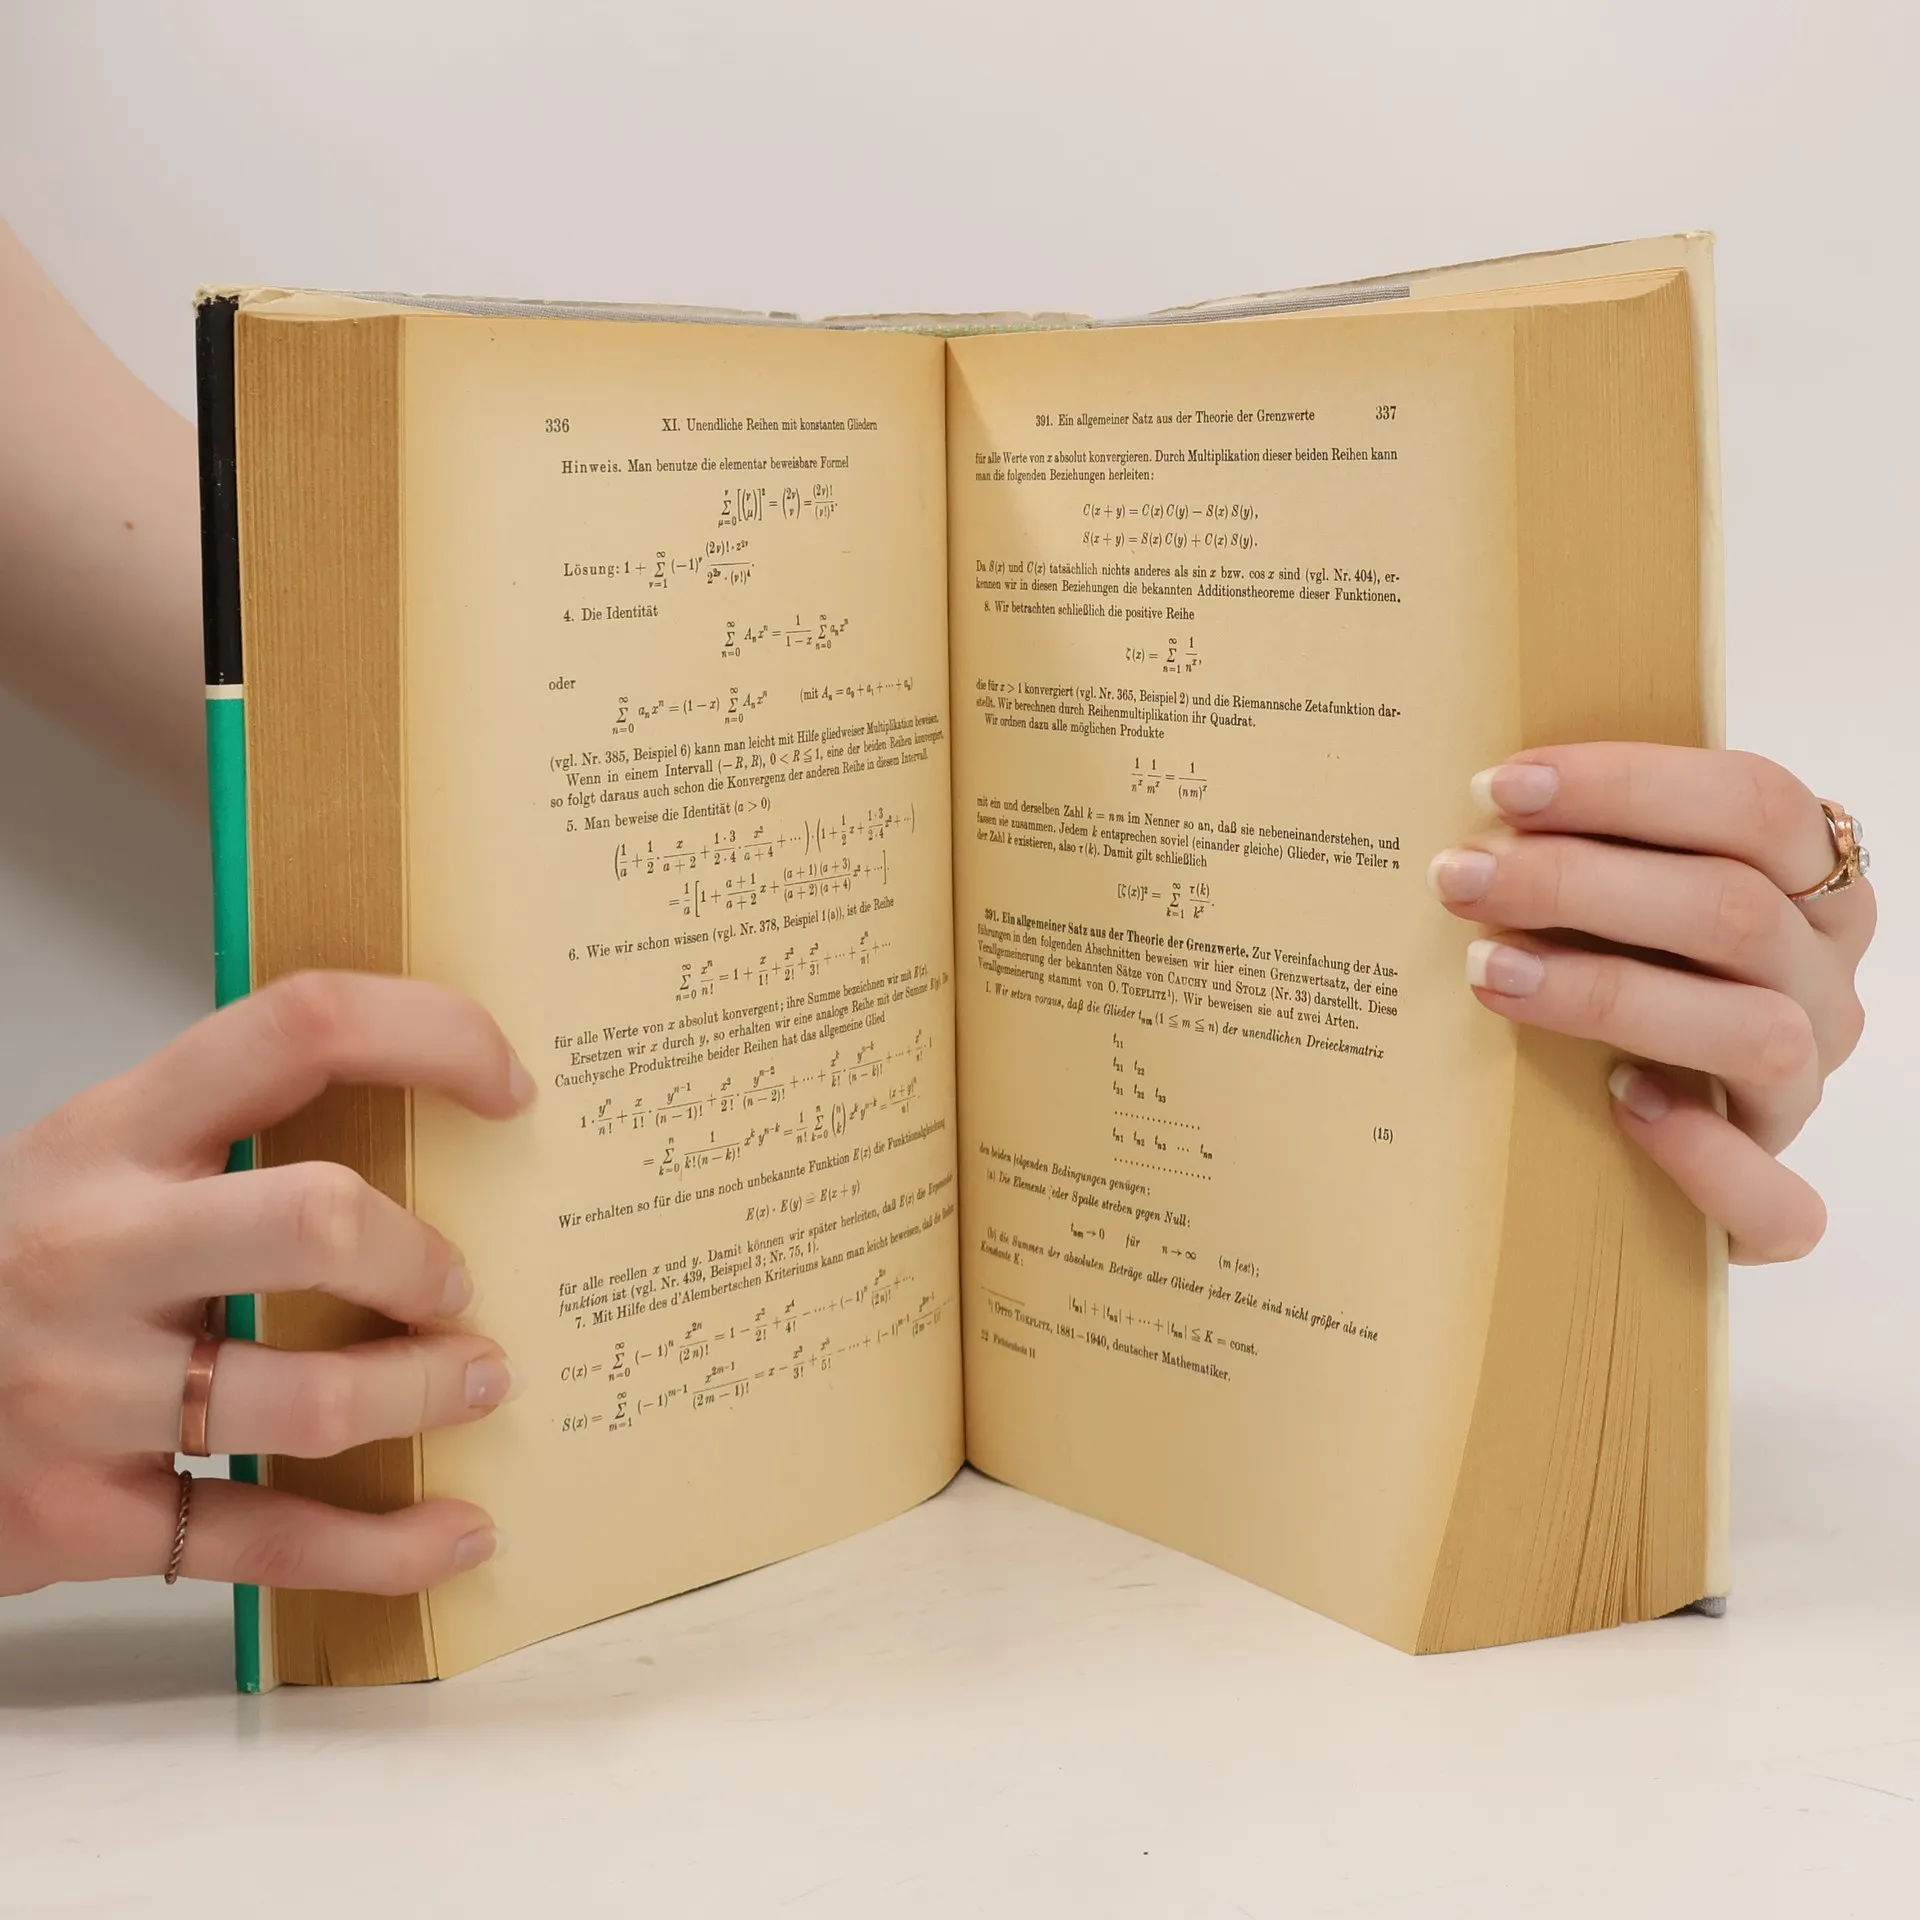 336 XI. Unendliche Reihen mit konstanten Gliedern
Hinweis. Man benutze die elementar beweisbare Formel
∑_{μ=0}^{ν} [(ν μ)]² = (2ν ν) = (2ν)!/(ν!)².
Lösung: 1 + ∑_{ν=1}^{∞} (−1)^ν (2ν)!·z^{2ν}/(2^{2ν}·(ν!)⁴).
4. Die Identität
∑_{n=0}^{∞} A_n x^n = 1/(1−x) ∑_{n=0}^{∞} a_n x^n
oder
∑_{n=0}^{∞} a_n x^n = (1−x) ∑_{n=0}^{∞} A_n x^n (mit A_n = a_0 + a_1 + ··· + a_n)
(vgl. Nr. 385, Beispiel 6) kann man leicht mit Hilfe gliedweiser Multiplikation beweisen.
Wenn in einem Intervall (−R, R), 0 < R ≦ 1, eine der beiden Reihen konvergiert,
so folgt daraus auch schon die Konvergenz der anderen Reihe in diesem Intervall.
5. Man beweise die Identität (a > 0)
(1/a + 1/2 · x/(a+2) + 1·3/2·4 · x²/(a+4) + ···) · (1 + 1/2 x + 1·3/2·4 x² + ···)
= 1/a [1 + (a+1)/(a+2) x + (a+1)(a+3)/(a+2)(a+4) x² + ···].
6. Wie wir schon wissen (vgl. Nr. 378, Beispiel 1(a)), ist die Reihe
∑_{n=0}^{∞} x^n/n! = 1 + x/1! + x²/2! + x³/3! + ··· + x^n/n! + ···
für alle Werte von x absolut konvergent; ihre Summe bezeichnen wir mit E(x).
Ersetzen wir x durch y, so erhalten wir eine analoge Reihe mit der Summe E(y). Die
Cauchysche Produktreihe beider Reihen hat das allgemeine Glied
1 · y^n/n! + x/1! · y^{n−1}/(n−1)! + x²/2! · y^{n−2}/(n−2)! + ··· + x^k/k! · y^{n−k}/(n−k)! + ··· + x^n/n! · 1
= ∑_{k=0}^{n} 1/(k!(n−k)!) x^k y^{n−k} = 1/n! ∑_{k=0}^{n} (n k) x^k y^{n−k} = (x+y)^n/n!.
Wir erhalten so für die uns noch unbekannte Funktion E(x) die Funktionalgleichung
E(x) · E(y) = E(x + y)
für alle reellen x und y. Damit können wir später herleiten, daß E(x) die Exponential-
funktion ist (vgl. Nr. 439, Beispiel 3; Nr. 75, 1).
7. Mit Hilfe des d'Alembertschen Kriteriums kann man leicht beweisen, daß die Reihen
C(x) = ∑_{n=0}^{∞} (−1)^n x^{2n}/(2n)! = 1 − x²/2! + x⁴/4! − ··· + (−1)^n x^{2n}/(2n)! + ···,
S(x) = ∑_{m=1}^{∞} (−1)^{m−1} x^{2m−1}/(2m−1)! = x − x³/3! + x⁵/5! − ··· + (−1)^{m−1} x^{2m−1}/(2m−1)!
391. Ein allgemeiner Satz aus der Theorie der Grenzwerte 337
für alle Werte von x absolut konvergieren. Durch Multiplikation dieser beiden Reihen kann
man die folgenden Beziehungen herleiten:
C(x + y) = C(x) C(y) − S(x) S(y),
S(x + y) = S(x) C(y) + C(x) S(y).
Da S(x) und C(x) tatsächlich nichts anderes als sin x bzw. cos x sind (vgl. Nr. 404), er-
kennen wir in diesen Beziehungen die bekannten Additionstheoreme dieser Funktionen.
8. Wir betrachten schließlich die positive Reihe
ζ(x) = ∑_{n=1}^{∞} 1/n^x,
die für x > 1 konvergiert (vgl. Nr. 365, Beispiel 2) und die Riemannsche Zetafunktion dar-
stellt. Wir berechnen durch Reihenmultiplikation ihr Quadrat.
Wir ordnen dazu alle möglichen Produkte
1/n^x 1/m^x = 1/(nm)^x
mit ein und derselben Zahl k = nm im Nenner so an, daß sie nebeneinanderstehen, und
fassen sie zusammen. Jedem k entsprechen soviel (einander gleiche) Glieder, wie Teiler n
der Zahl k existieren, also τ(k). Damit gilt schließlich
[ζ(x)]² = ∑_{k=1}^{∞} τ(k)/k^x.
391. Ein allgemeiner Satz aus der Theorie der Grenzwerte. Zur Vereinfachung der Aus-
führungen in den folgenden Abschnitten beweisen wir hier einen Grenzwertsatz, der eine
Verallgemeinerung der bekannten Sätze von CAUCHY und STOLZ (Nr. 33) darstellt. Diese
Verallgemeinerung stammt von O. TOEPLITZ¹). Wir beweisen sie auf zwei Arten.
I. Wir setzen voraus, daß die Glieder t_{nm} (1 ≦ m ≦ n) der unendlichen Dreiecksmatrix
t_{11}
t_{21} t_{22}
t_{31} t_{32} t_{33}
..............
t_{n1} t_{n2} t_{n3} ··· t_{nn} (15)
..............
den beiden folgenden Bedingungen genügen:
(a) Die Elemente jeder Spalte streben gegen Null:
t_{nm} → 0 für n → ∞ (m fest);
(b) die Summen der absoluten Beträge aller Glieder jeder Zeile sind nicht größer als eine
Konstante K:
|t_{n1}| + |t_{n2}| + ··· + |t_{nn}| ≦ K = const.
¹) OTTO TOEPLITZ, 1881–1940, deutscher Mathematiker.
22 Fichtenholz II